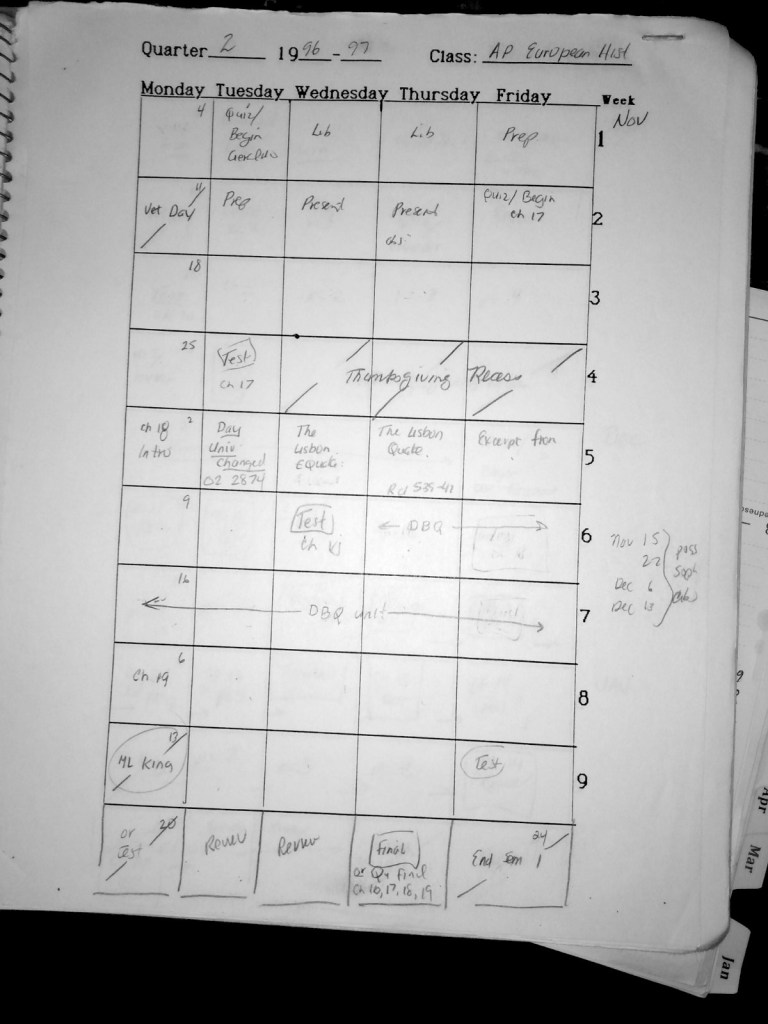 Quarter 2 1996-97 Class: AP European Hist
Monday Tuesday Wednesday Thursday Friday Week
Nov
4 Quiz/ Lib Lib Prep 1
Begin
11 Prep Present Present Quiz/ Begin 2
Vet Day ch 17
18 3
25 Test Thanksgiving Recess 4
ch 17
ch 18 2 Day The The Lisbon Excerpt from 5
Intro Univ Lisbon Quake.
Changed
02 2874 Rd 539-41
9 Test DBQ 6
ch
Nov 15
22
Dec 6
Dec 13
pass
Sept
16 DBQ unit 7
6 8
Ch 19
13 Test 9
ML King
or 20 Review Review Final End Sem 1 24
Test or Q4 Final
Ch 16, 17, 18, 19
Apr
Mar
Jan